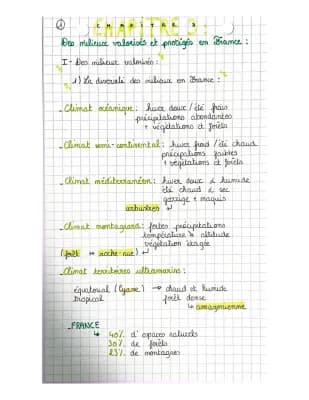 ① CHAPITRE 3 :
Des milieux valorisés et protégés en France :
I - Des milieux valorisés :
1) La diversité des milieux en France :
- Climat océanique : hiver doux / été frais
précipitations abondantes
+ végétations et forêts
- Climat semi-continental : hiver froid / été chaud
précipitations faibles
+ végétations et forêts
- Climat méditerranéen : hiver doux & humide
été chaud & sec
garrigue + maquis
arbustres ↵
- Climat montagnard : fortes précipitations
température ↘ altitude
végétation étagée
(forêt ↔ roche-nue) ↵
- Climat territoires ultramarins :
équatorial (Guyane) → chaud et humide
tropical forêt dense
↳ amazonienne
- FRANCE
↳ 40% d'espaces naturels
30% de forêts
23% de montagnes